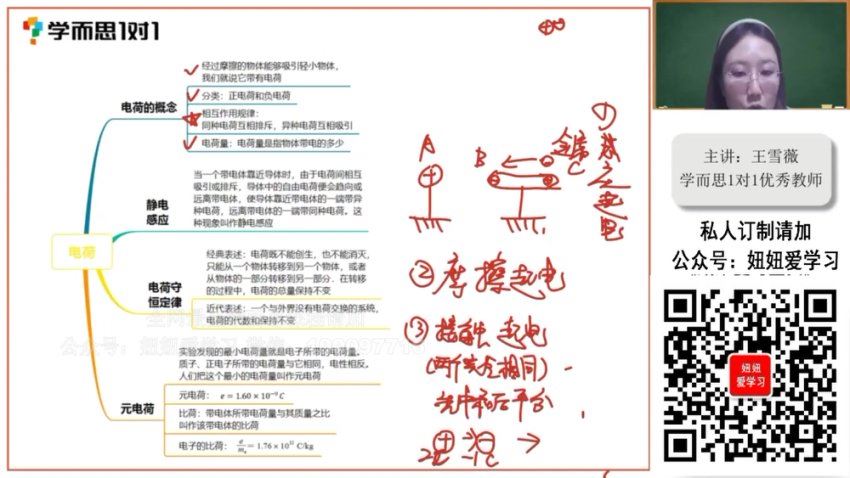 学而思1对1
电荷
电荷的概念
经过摩擦的物体能够吸引轻小物体，
我们就说它带有电荷
分类：正电荷和负电荷
相互作用规律：
同种电荷互相排斥，异种电荷互相吸引
电荷量：电荷量是指物体带电的多少
静电
感应
当一个带电体靠近导体时，由于电荷间相互
吸引或排斥，导体中的自由电荷便会趋向或
远离带电体，使导体靠近带电体的一端带异
种电荷，远离带电体的一端带同种电荷。这
种现象叫作静电感应
电荷守
恒定律
经典表述：电荷既不能创生，也不能消灭，
只能从一个物体转移到另一个物体，或者
从物体的一部分转移到另一部分。在转移
的过程中，电荷的总量保持不变
近代表述：一个与外界没有电荷交换的系统，
电荷的代数和保持不变
元电荷
实验发现的最小电荷量就是电子所带的电荷量。
质子、正电子所带的电荷量与它相同，电性相反。
人们把这个最小的电荷量叫作元电荷
元电荷： e = 1.60 × 10⁻⁹ C
比荷：带电体所带电荷量与其质量之比
叫作该带电体的比荷
电子的比荷： e/mₑ = 1.76 × 10¹¹ C/kg
A
B
金属
C
①感应起电
②摩擦起电
③接触起电
(两个完全相同)
先中和后平分
+
-
-1C
主讲：王雪薇
学而思1对1优秀教师
私人订制请加
公众号：妞妞爱学习
妞妞
爱学习